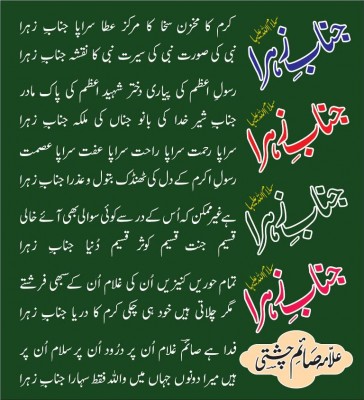 کرم کا مخزن سخا کا مرکز عطا سراپا جناب زہرا
نبی کی صورت نبی کی سیرت نبی کا نقشہ جناب زہرا
رسولِ اعظم کی پیاری دختر شہیدِ اعظم کی پاک مادر
جنابِ شیرِ خدا کی بانو جناں کی ملکہ جناب زہرا
سراپا رحمت سراپا راحت سراپا عفت سراپا عصمت
رسولِ اکرم کے دل کی ٹھنڈک بتول و عذرا جناب زہرا
ہے غیر ممکن کہ اُس کے در سے کوئی سوالی بھی آئے خالی
قسیمِ جنت قسیمِ کوثر قسیمِ دُنیا جناب زہرا
تمام حوریں کنیزیں اُن کی غلام اُن کے سبھی فرشتے
مگر چلاتی ہیں خود ہی چکی کرم کا دریا جناب زہرا
فدا ہے صائم غلام اُن پر درُود اُن پر سلام اُن پر
ہیں میرا دونوں جہاں میں واللہ فقط سہارا جناب زہرا
جنابِ زہرا
جنابِ زہرا
جنابِ زہرا
جنابِ زہرا
علامہ صائم چشتی